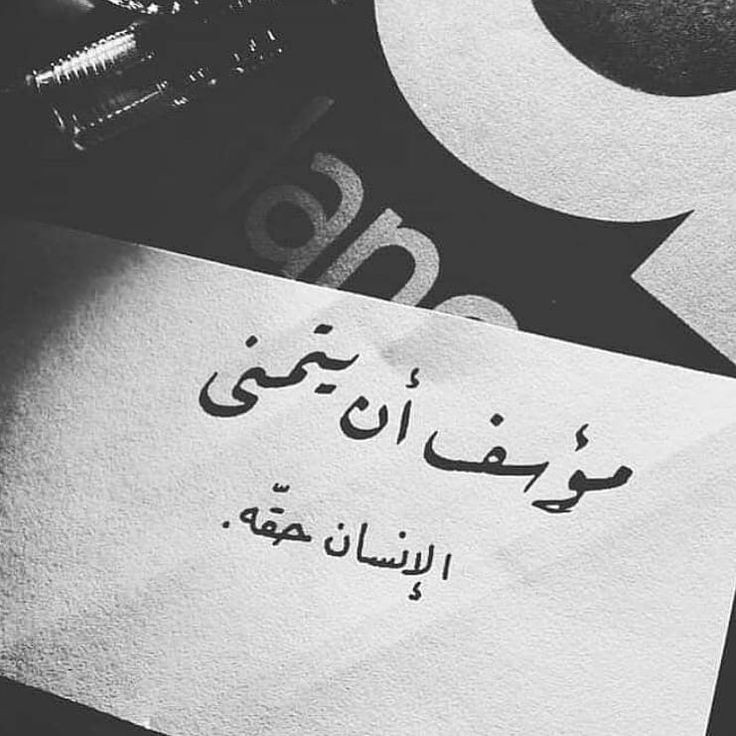 مؤسف أن يتمنى
الإنسان حقّه.